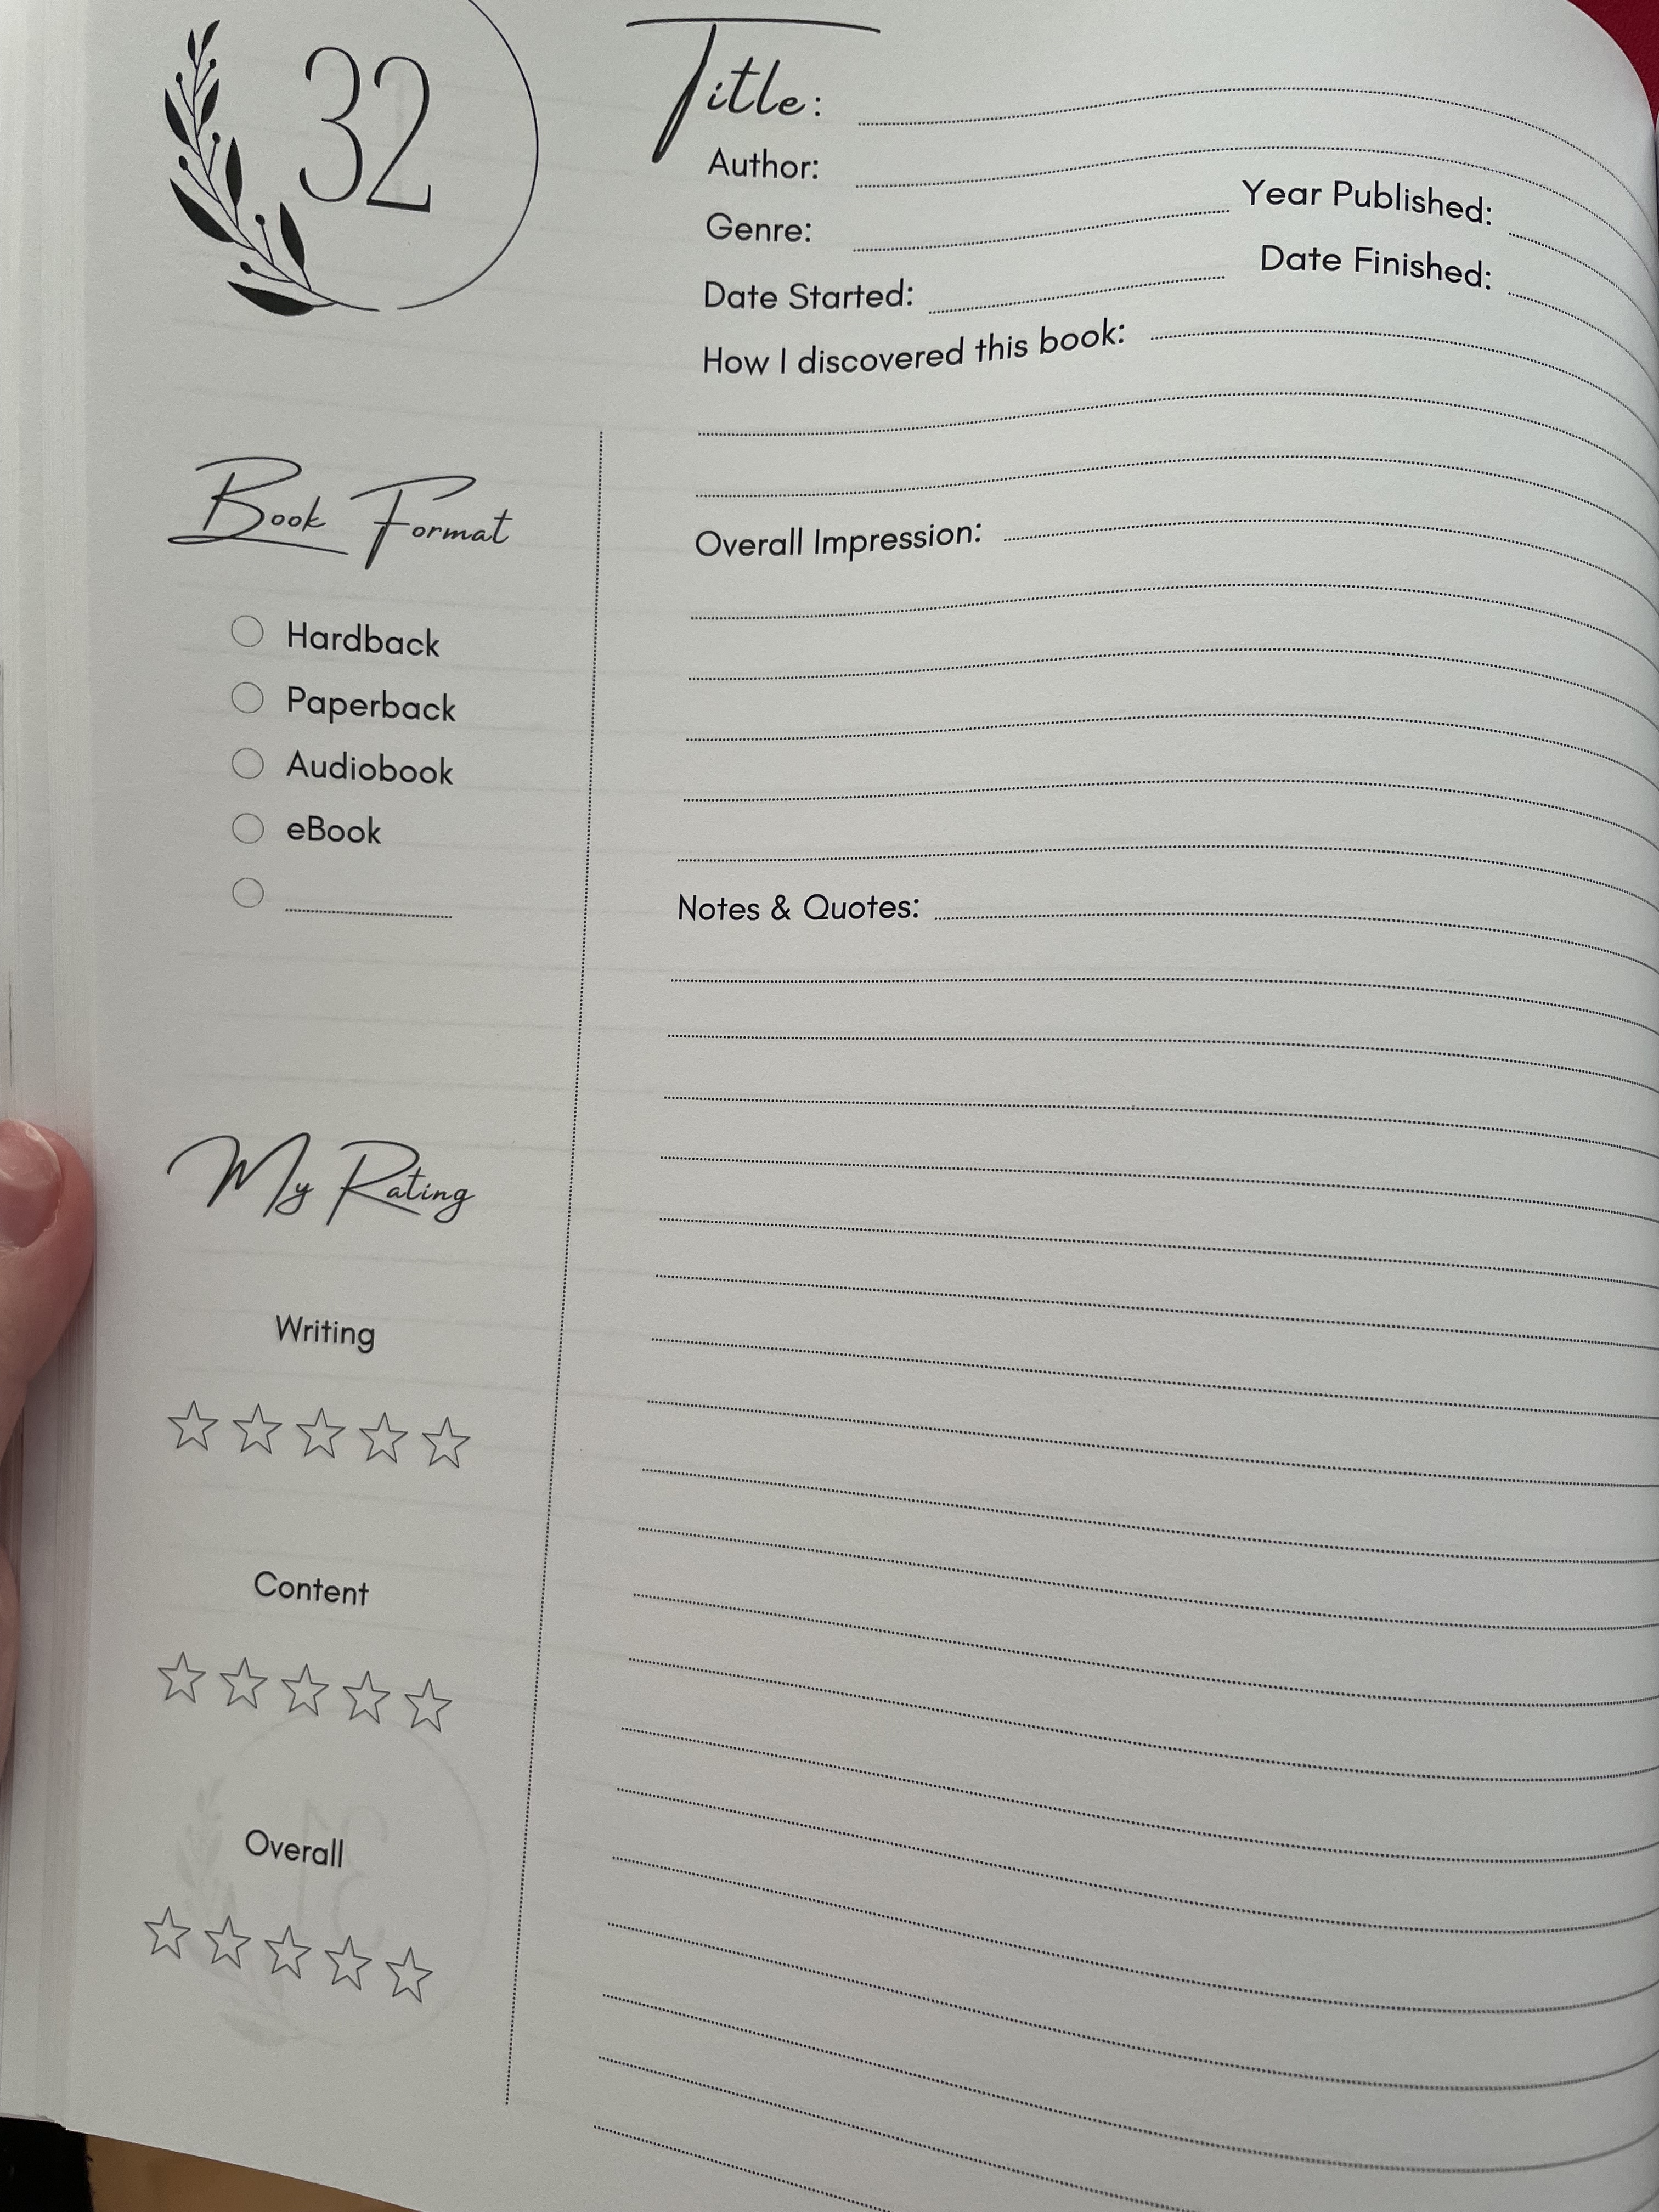 32
Title:
Author:
Genre:
Year Published:
Date Started:
Date Finished:
How I discovered this book:
Overall Impression:
Notes & Quotes:
Book Format
Hardback
Paperback
Audiobook
eBook
My Rating
Writing
Content
Overall
31